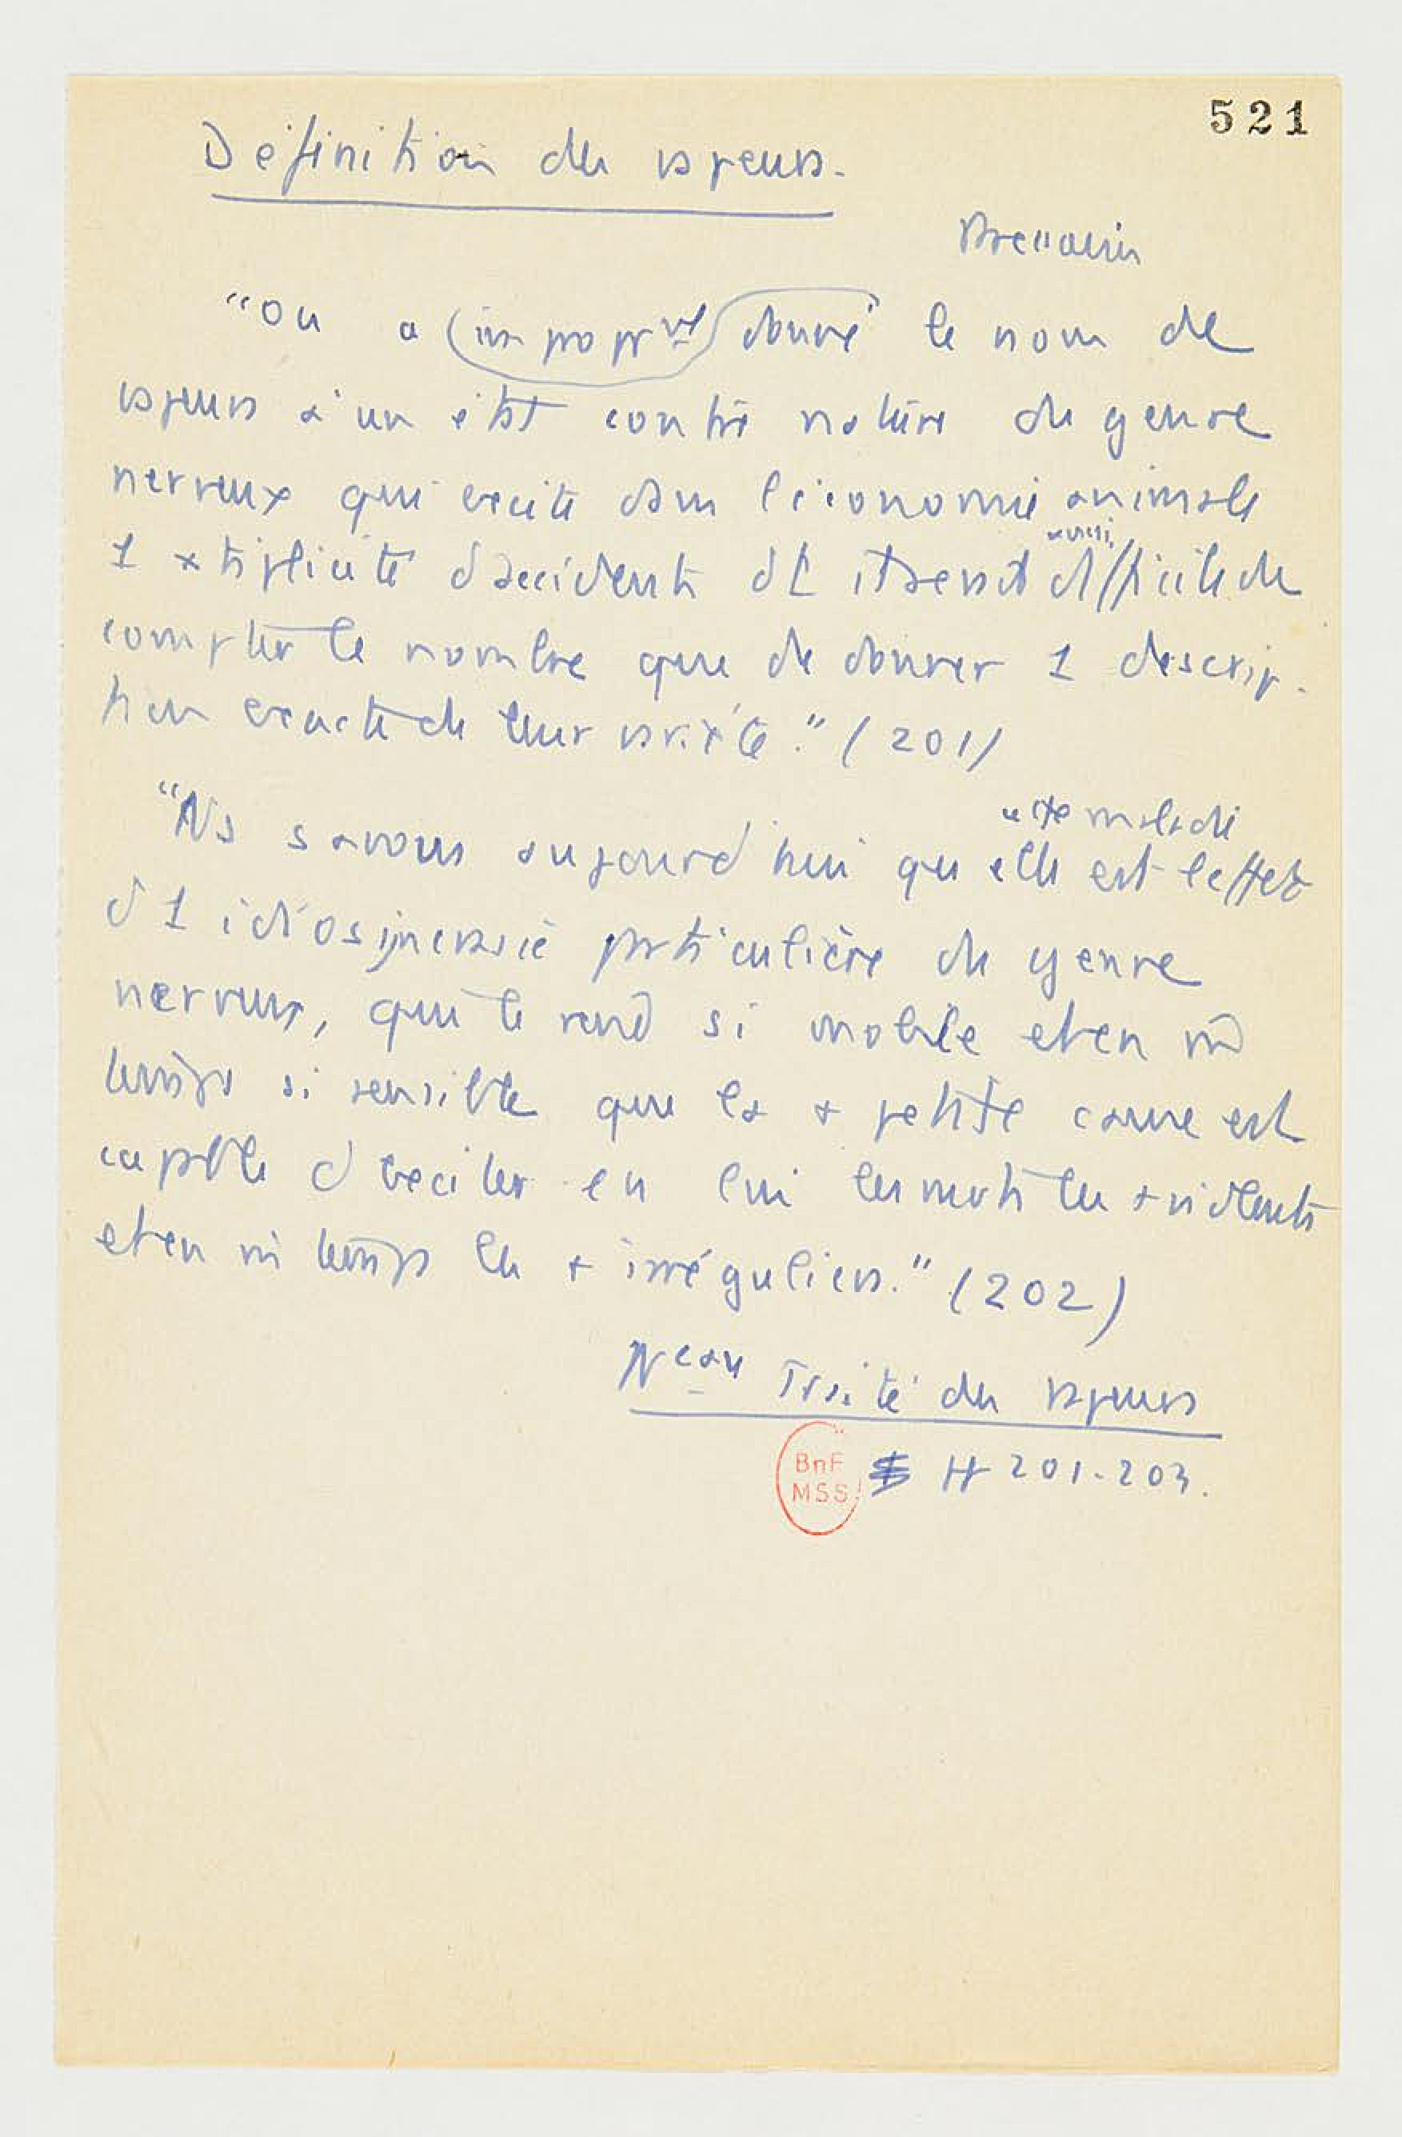 521
Définition des vapeurs.
Bressain
"On a (impropr<sup>vt</sup>) donné le nom de
vapeurs à un état contre nature du genre
nerveux qui excite dans l'économie animale
1 xtiplicité d'accidents dt il serait aussi difficile de
compter le nombre que de donner 1 descrip-
tion exacte de leur variété." (201)
"cte maladie
"Ns savons aujourd'hui qu'elle est l'effet
d'1 idiosyncrasie particulière du genre
nerveux, qui le rend si mobile et en m̂
temps si sensible que la + petite cause est
capable d'exciter en lui les mvts les + violents
et en m̂ temps les + irréguliers." (202)
Neau Traité des vapeurs
BnF
MSS
H 201-203.